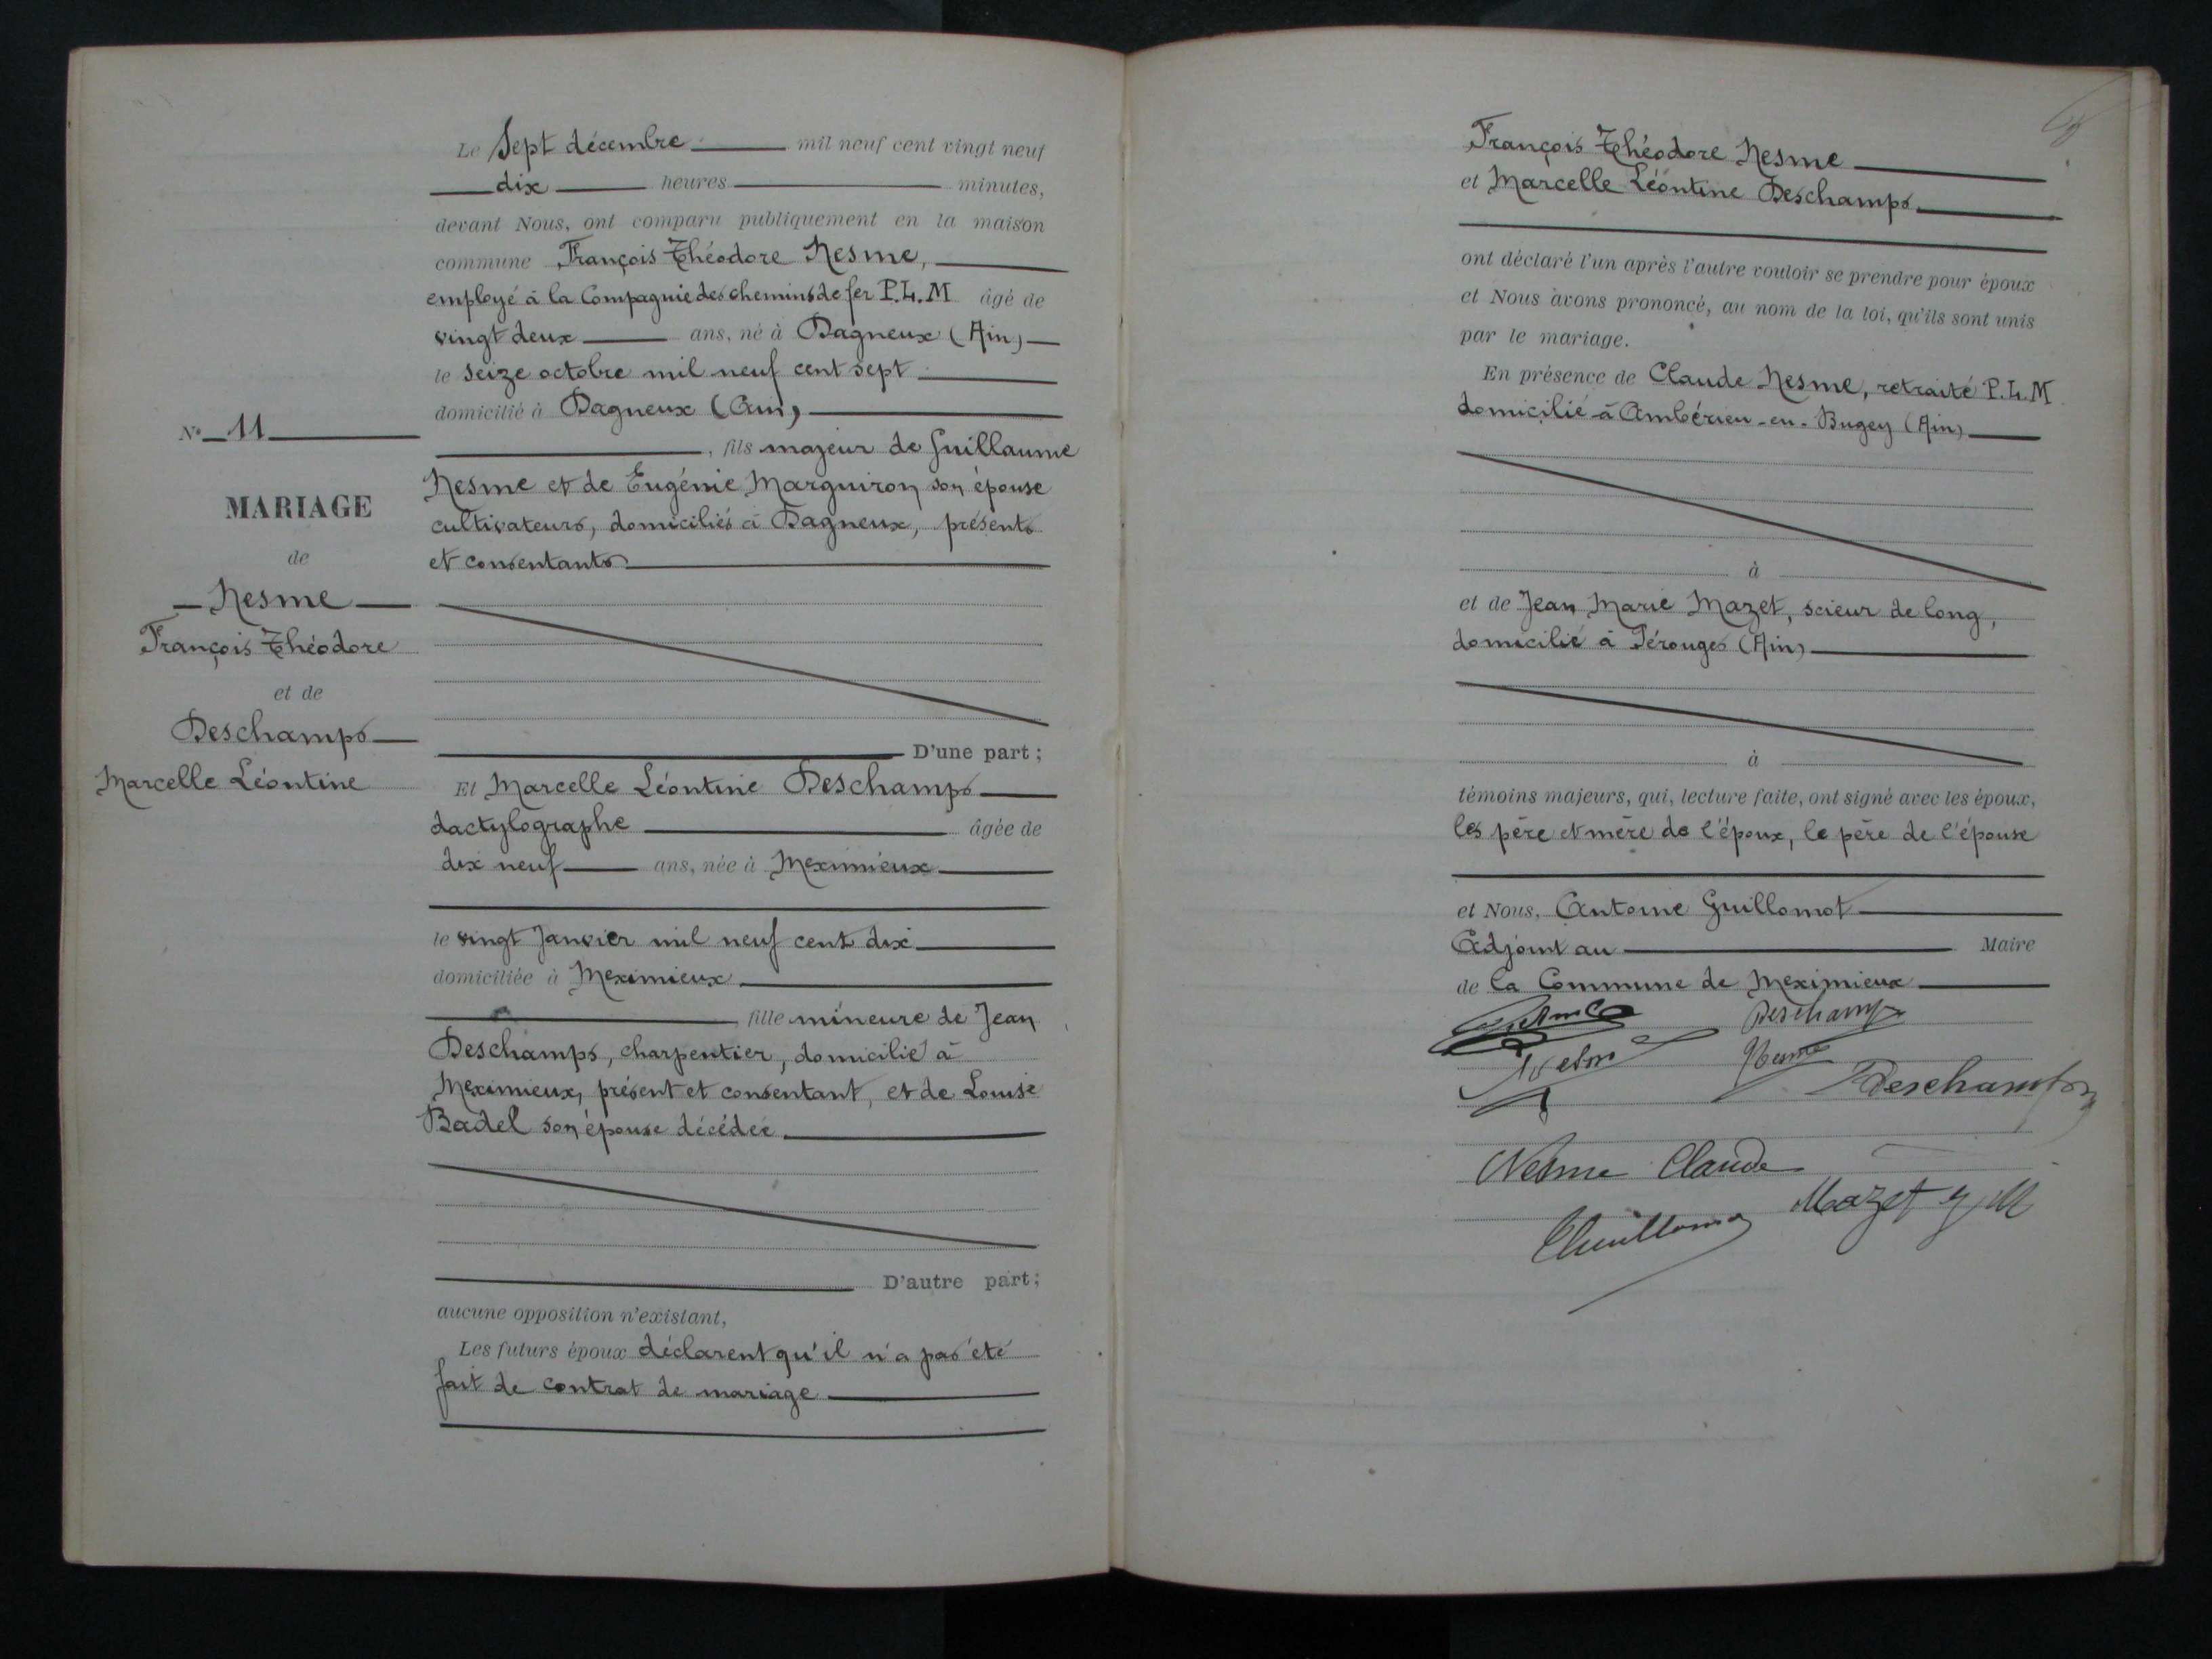 N° 11
MARIAGE
de
Nesme
François Théodore
et de
Deschamps
Marcelle Léontine
Le Sept décembre mil neuf cent vingt neuf
dix heures minutes,
devant Nous, ont comparu publiquement en la maison
commune François Théodore Nesme,
employé à la Compagnie des chemins de fer P.L.M âgé de
vingt deux ans, né à Dagneux (Ain)
le seize octobre mil neuf cent sept
domicilié à Dagneux (Ain)
, fils majeur de Guillaume
Nesme et de Eugénie Marguiron son épouse
cultivateurs, domiciliés à Dagneux, présents
et consentants
D'une part ;
Et Marcelle Léontine Deschamps
dactylographe âgée de
dix neuf ans, née à Meximieux
le vingt Janvier mil neuf cent dix
domiciliée à Meximieux
, fille mineure de Jean
Deschamps, charpentier, domicilié à
Meximieux, présent et consentant, et de Louise
Badel son épouse décédée
D'autre part ;
aucune opposition n'existant,
Les futurs époux déclarent qu'il n'a pas été
fait de contrat de mariage
François Théodore Nesme
et Marcelle Léontine Deschamps
ont déclaré l'un après l'autre vouloir se prendre pour époux
et Nous avons prononcé, au nom de la loi, qu'ils sont unis
par le mariage.
En présence de Claude Nesme, retraité P.L.M
domicilié à Ambérieu-en-Bugey (Ain)
à
et de Jean Marie Mazet, scieur de long,
domicilié à Pérouges (Ain)
à
témoins majeurs, qui, lecture faite, ont signé avec les époux,
les père et mère de l'époux, le père de l'épouse
et Nous, Antoine Guillomot
Adjoint au Maire
de la Commune de Meximieux
Deschamps
Nesme
Deschamps
Nesme Claude
Mazet J M